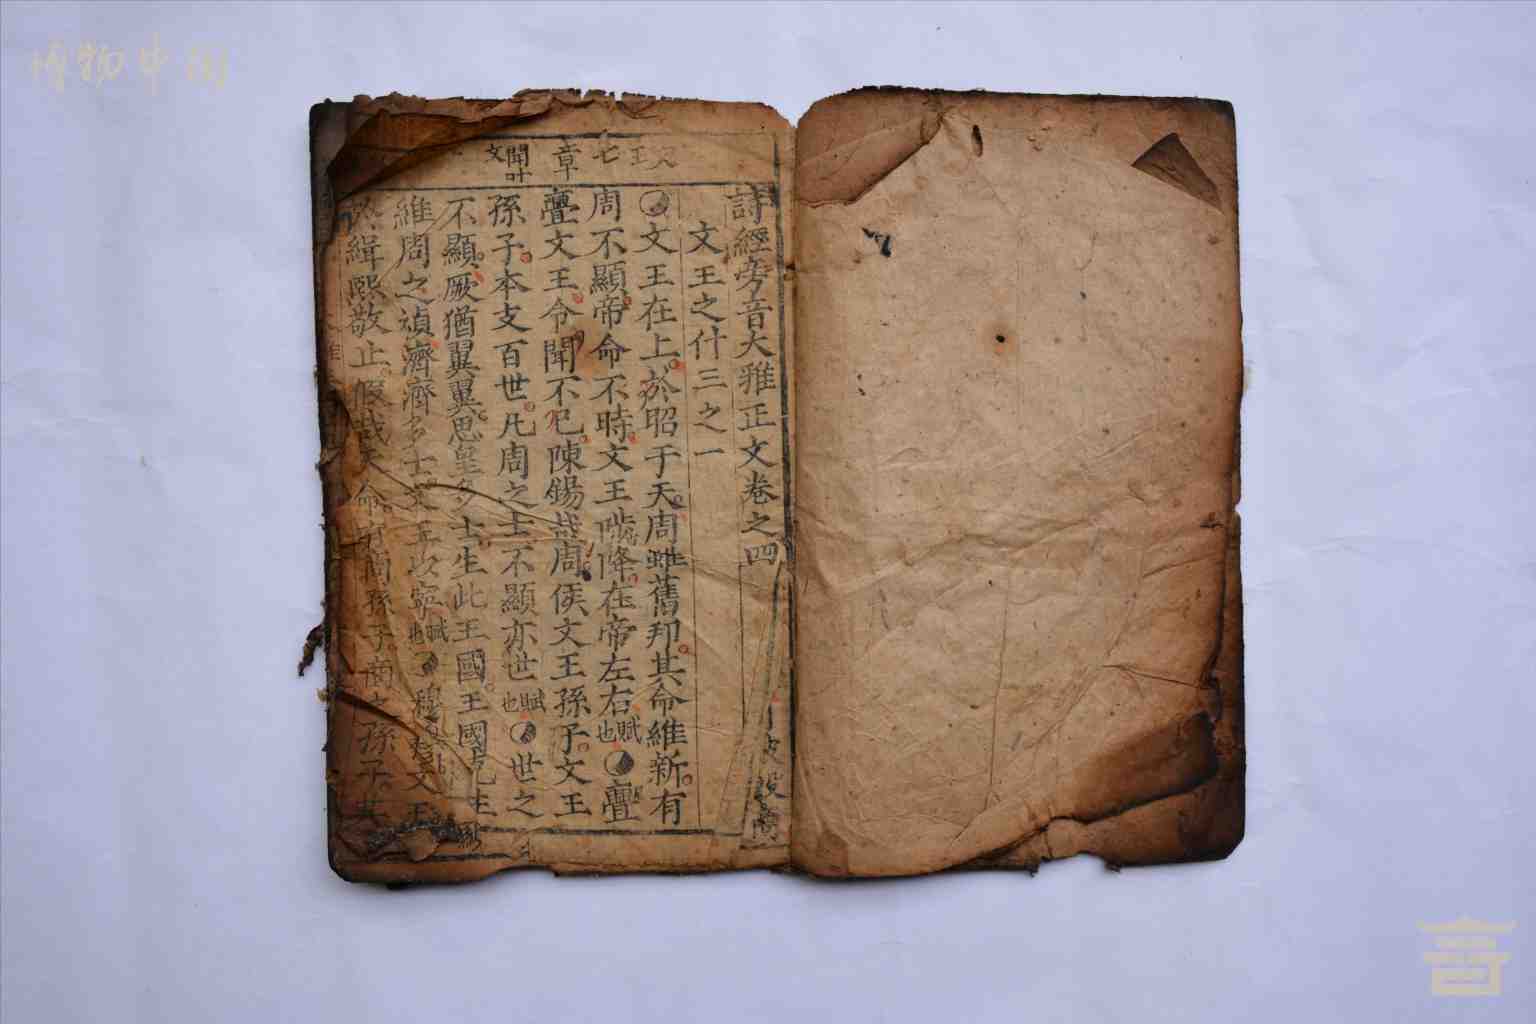 博物中街
詩經旁音大雅正文卷之四
文王之什三之一
文王在上於昭于天周雖舊邦其命維新有
周不顯帝命不時文王陟降在帝左右賦也亹
亹文王令聞不已陳錫哉周侯文王孫子文王
孫子本支百世凡周之士不顯亦世賦也世之
不顯厥猶翼翼思皇多士生此王國王國克生
維周之禎濟濟多士文王以寧賦也穆穆文王
於緝熙敬止假哉天命有商孫子商之孫子其
文王七
章
聞叶
文